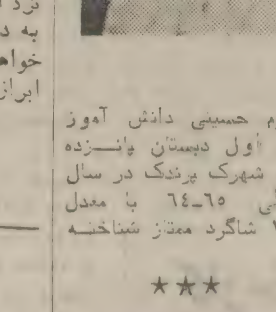 نزد ا
به د
خواه
ابراز
م حسینی دانش آموز
اول دبستان پانزده
شهرک پرندک در سال
ی ۶۵-۶۴ با معدل
شاگرد ممتاز شناخته
★★★